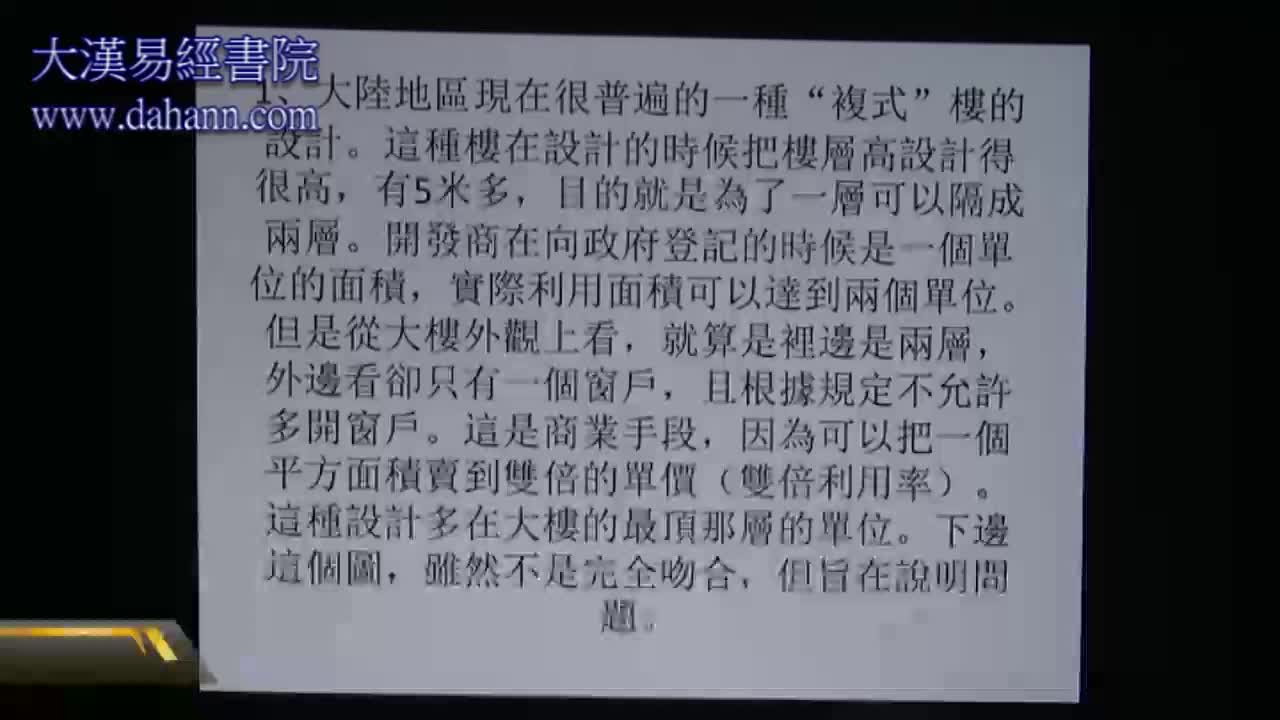 大漢易經書院
www.dahann.com
1、大陸地區現在很普遍的一種“複式”樓的
設計。這種樓在設計的時候把樓層高設計得
很高，有5米多，目的就是為了一層可以隔成
兩層。開發商在向政府登記的時候是一個單
位的面積，實際利用面積可以達到兩個單位。
但是從大樓外觀上看，就算是裡邊是兩層，
外邊看卻只有一個窗戶，且根據規定不允許
多開窗戶。這是商業手段，因為可以把一個
平方面積賣到雙倍的單價（雙倍利用率）。
這種設計多在大樓的最頂那层的單位。下邊
這個圖，雖然不是完全吻合，但旨在說明問
題。